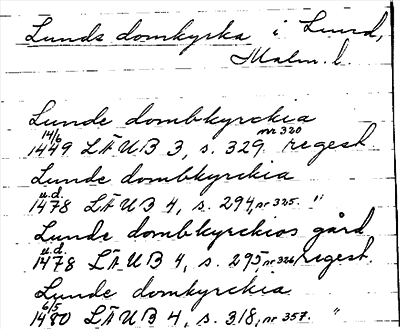 Lunds domkyrka i Lund,
Malm. l.
Lunde dombkyrckia
14/6 1449 LÄUB 3, s. 329 nr 320 regest
Lunde dombkyrckia
u.d. 1478 LÄUB 4, s. 294, nr 325. "
Lunde dombkyrckios gård
u.d. 1478 LÄUB 4, s. 295, nr 326 regest.
Lunde domkyrckia
6/5 1480 LÄUB 4, s. 318, nr 357. "